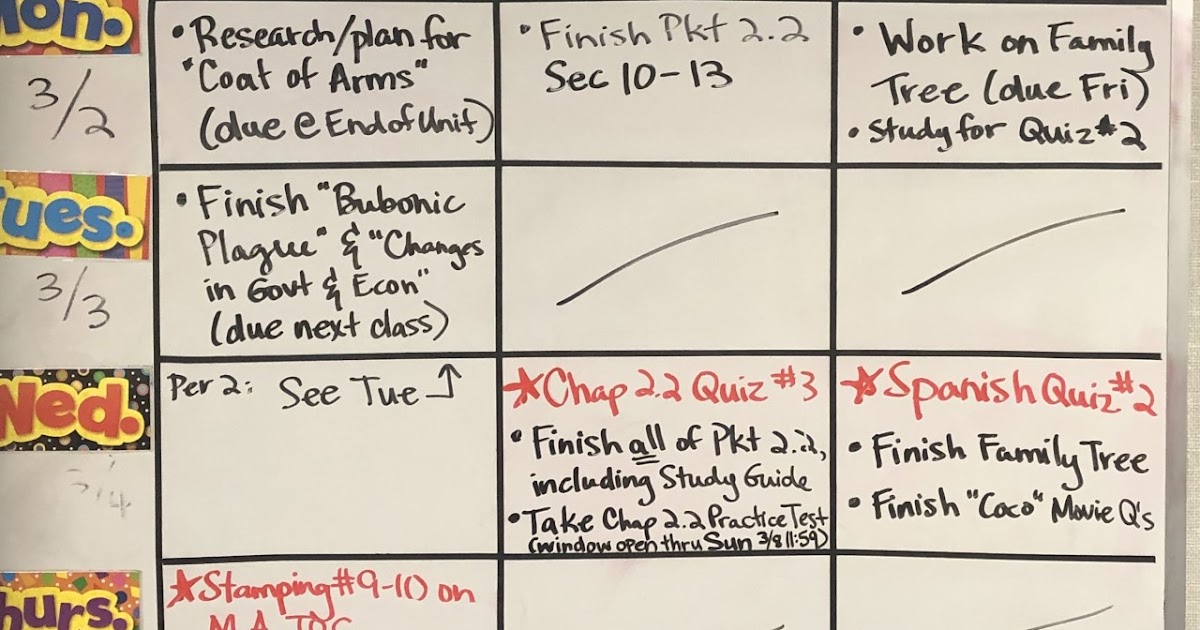 on.
3/2
• Research/plan for
"Coat of Arms"
(due @ End of Unit)
• Finish Pkt 2.2
Sec 10-13
• Work on Family
Tree (due Fri)
• Study for Quiz #2
ues.
3/3
• Finish "Bubonic
Plague" & "Changes
in Govt & Econ"
(due next class)
Wed.
3/4
Per 2: See Tue ↑
★Chap 2.2 Quiz #3
• Finish all of Pkt 2.2,
including Study Guide
• Take Chap 2.2 Practice Test
(window open thru Sun 3/8 11:59)
★Spanish Quiz #2
• Finish Family Tree
• Finish "Coco" Movie Q's
hurs.
★Stamping #9-10 on
M.A. TOC